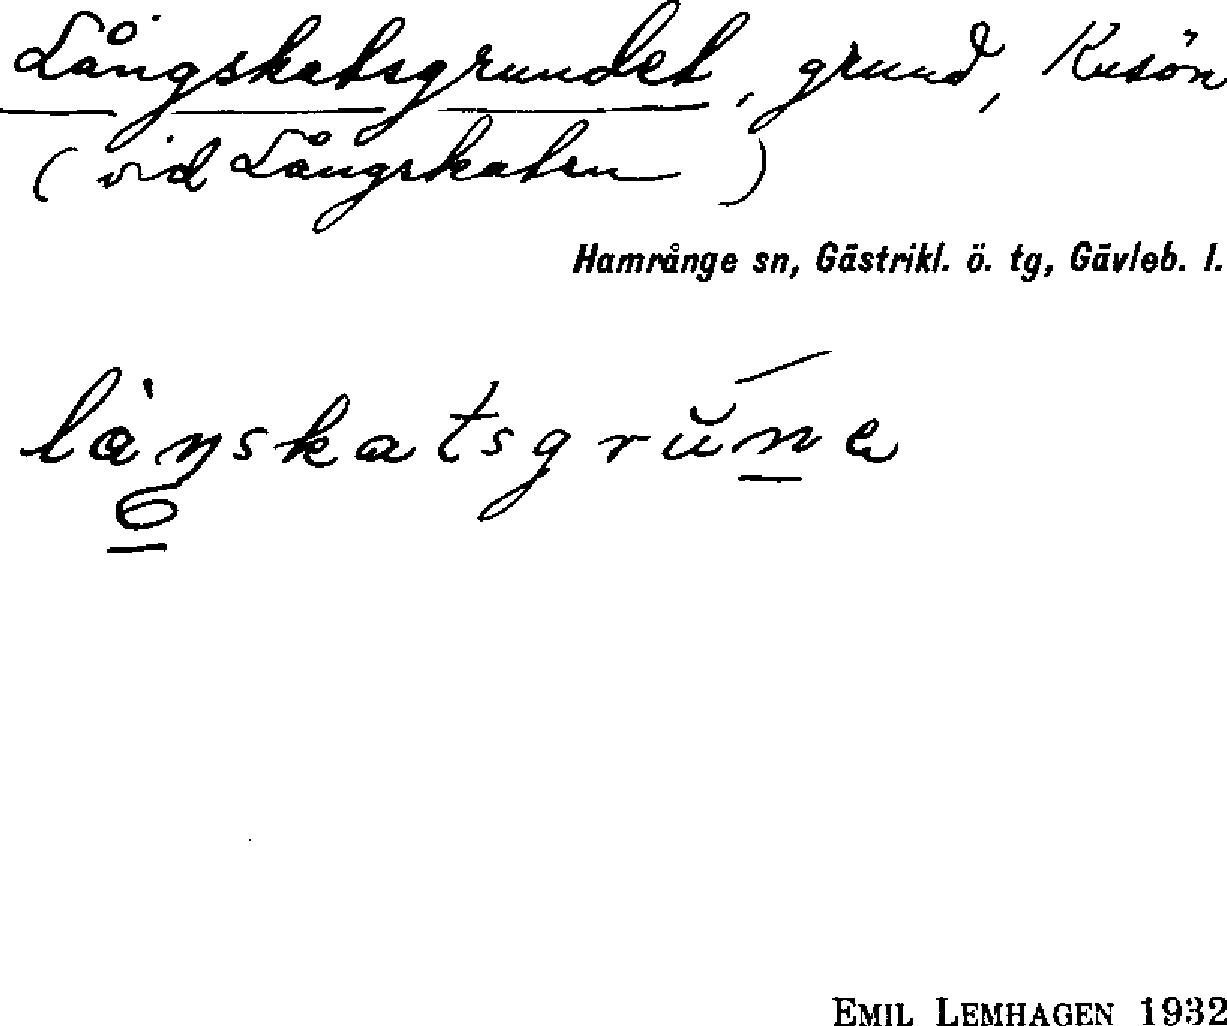 Långskatsgrundet, grund, Kusön
(vid Långskaten)
Hamrånge sn, Gästrikl. ö. tg, Gävleb. l.
EMIL LEMHAGEN 1932